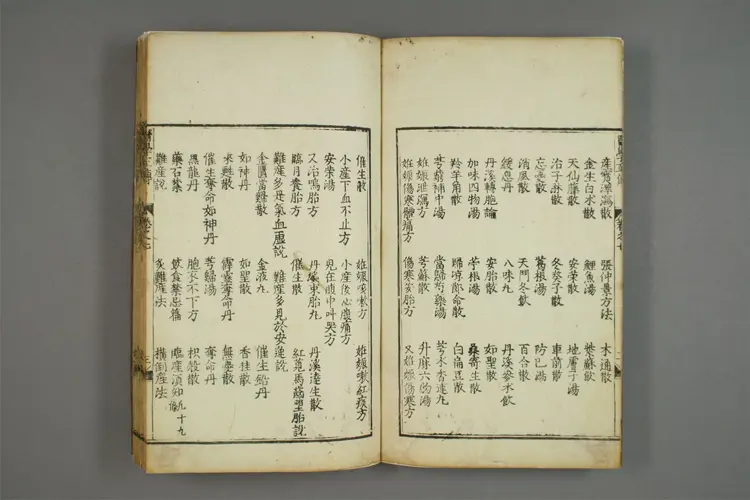 產寶澤瀉散　張仲景方法　木通散
全生白朮散　鯉魚湯　紫蘇飲
天仙藤散　安榮散　地膚子湯
治子淋散　冬葵子散　車前散
忘憂散　葛根湯　防己湯
消風散　天門冬飲　百合散
緩息丹　八味丸　丹溪參朮飲
丹溪轉胞論　安胎散　如聖散
加味四物湯　苧根湯　桑寄生散
羚羊角散　歸凉節命散　白扁豆散
芎藭補中湯　當歸芍藥湯　芩朮香連丸
妊娠泄瀉方　芩蘇散　升麻六物湯
妊娠傷寒體痛方　傷寒安胎方　又妊娠傷寒方
催生散　妊娠咳嗽方　妊娠嗽紅痰方
小產下血不止方　小產後心腹痛方
安榮湯　兒在腹中叫哭方
又治鳴胎方　丹溪束胎丸　丹溪達生散
臨月養胎方　催生散　紅莧馬齒聖胎說
難產多是氣血虛說　難產多見於安逸說
金匱當歸散　金液丸　催生鉛丹
如神丹　如聖散　香桂散
來甦散　霹靂奪命丹　無憂散
催生奪命如神丹　芎歸湯　奪命丹
黑龍丹　胞衣不下方　枳殼散
藥石禁　飲食禁忌　臨產須知　九十九條
難產說　炙難產法　橫倒產法